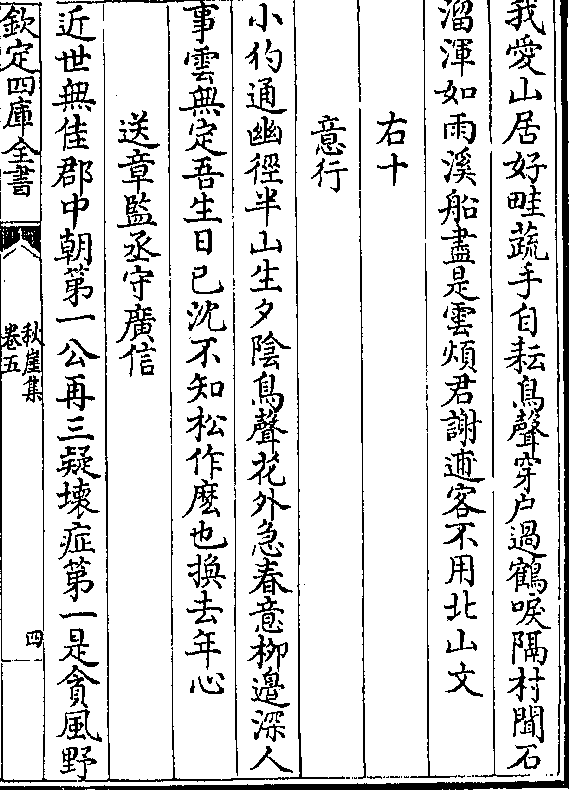 我愛山居好畦蔬手自耘鳥聲穿户過鶴唳隔村聞石
溜渾如雨溪船盡是雲煩君謝逋客不用北山文
右十
意行
小彴通幽徑半山生夕陰鳥聲花外急春意柳邊深人
事雲無定吾生日已沈不知松作麽也換去年心
送章監丞守廣信
近世無佳郡中朝第一公再三疑壊症第一是貪風野
欽定四庫全書
秋崖集
卷五
四